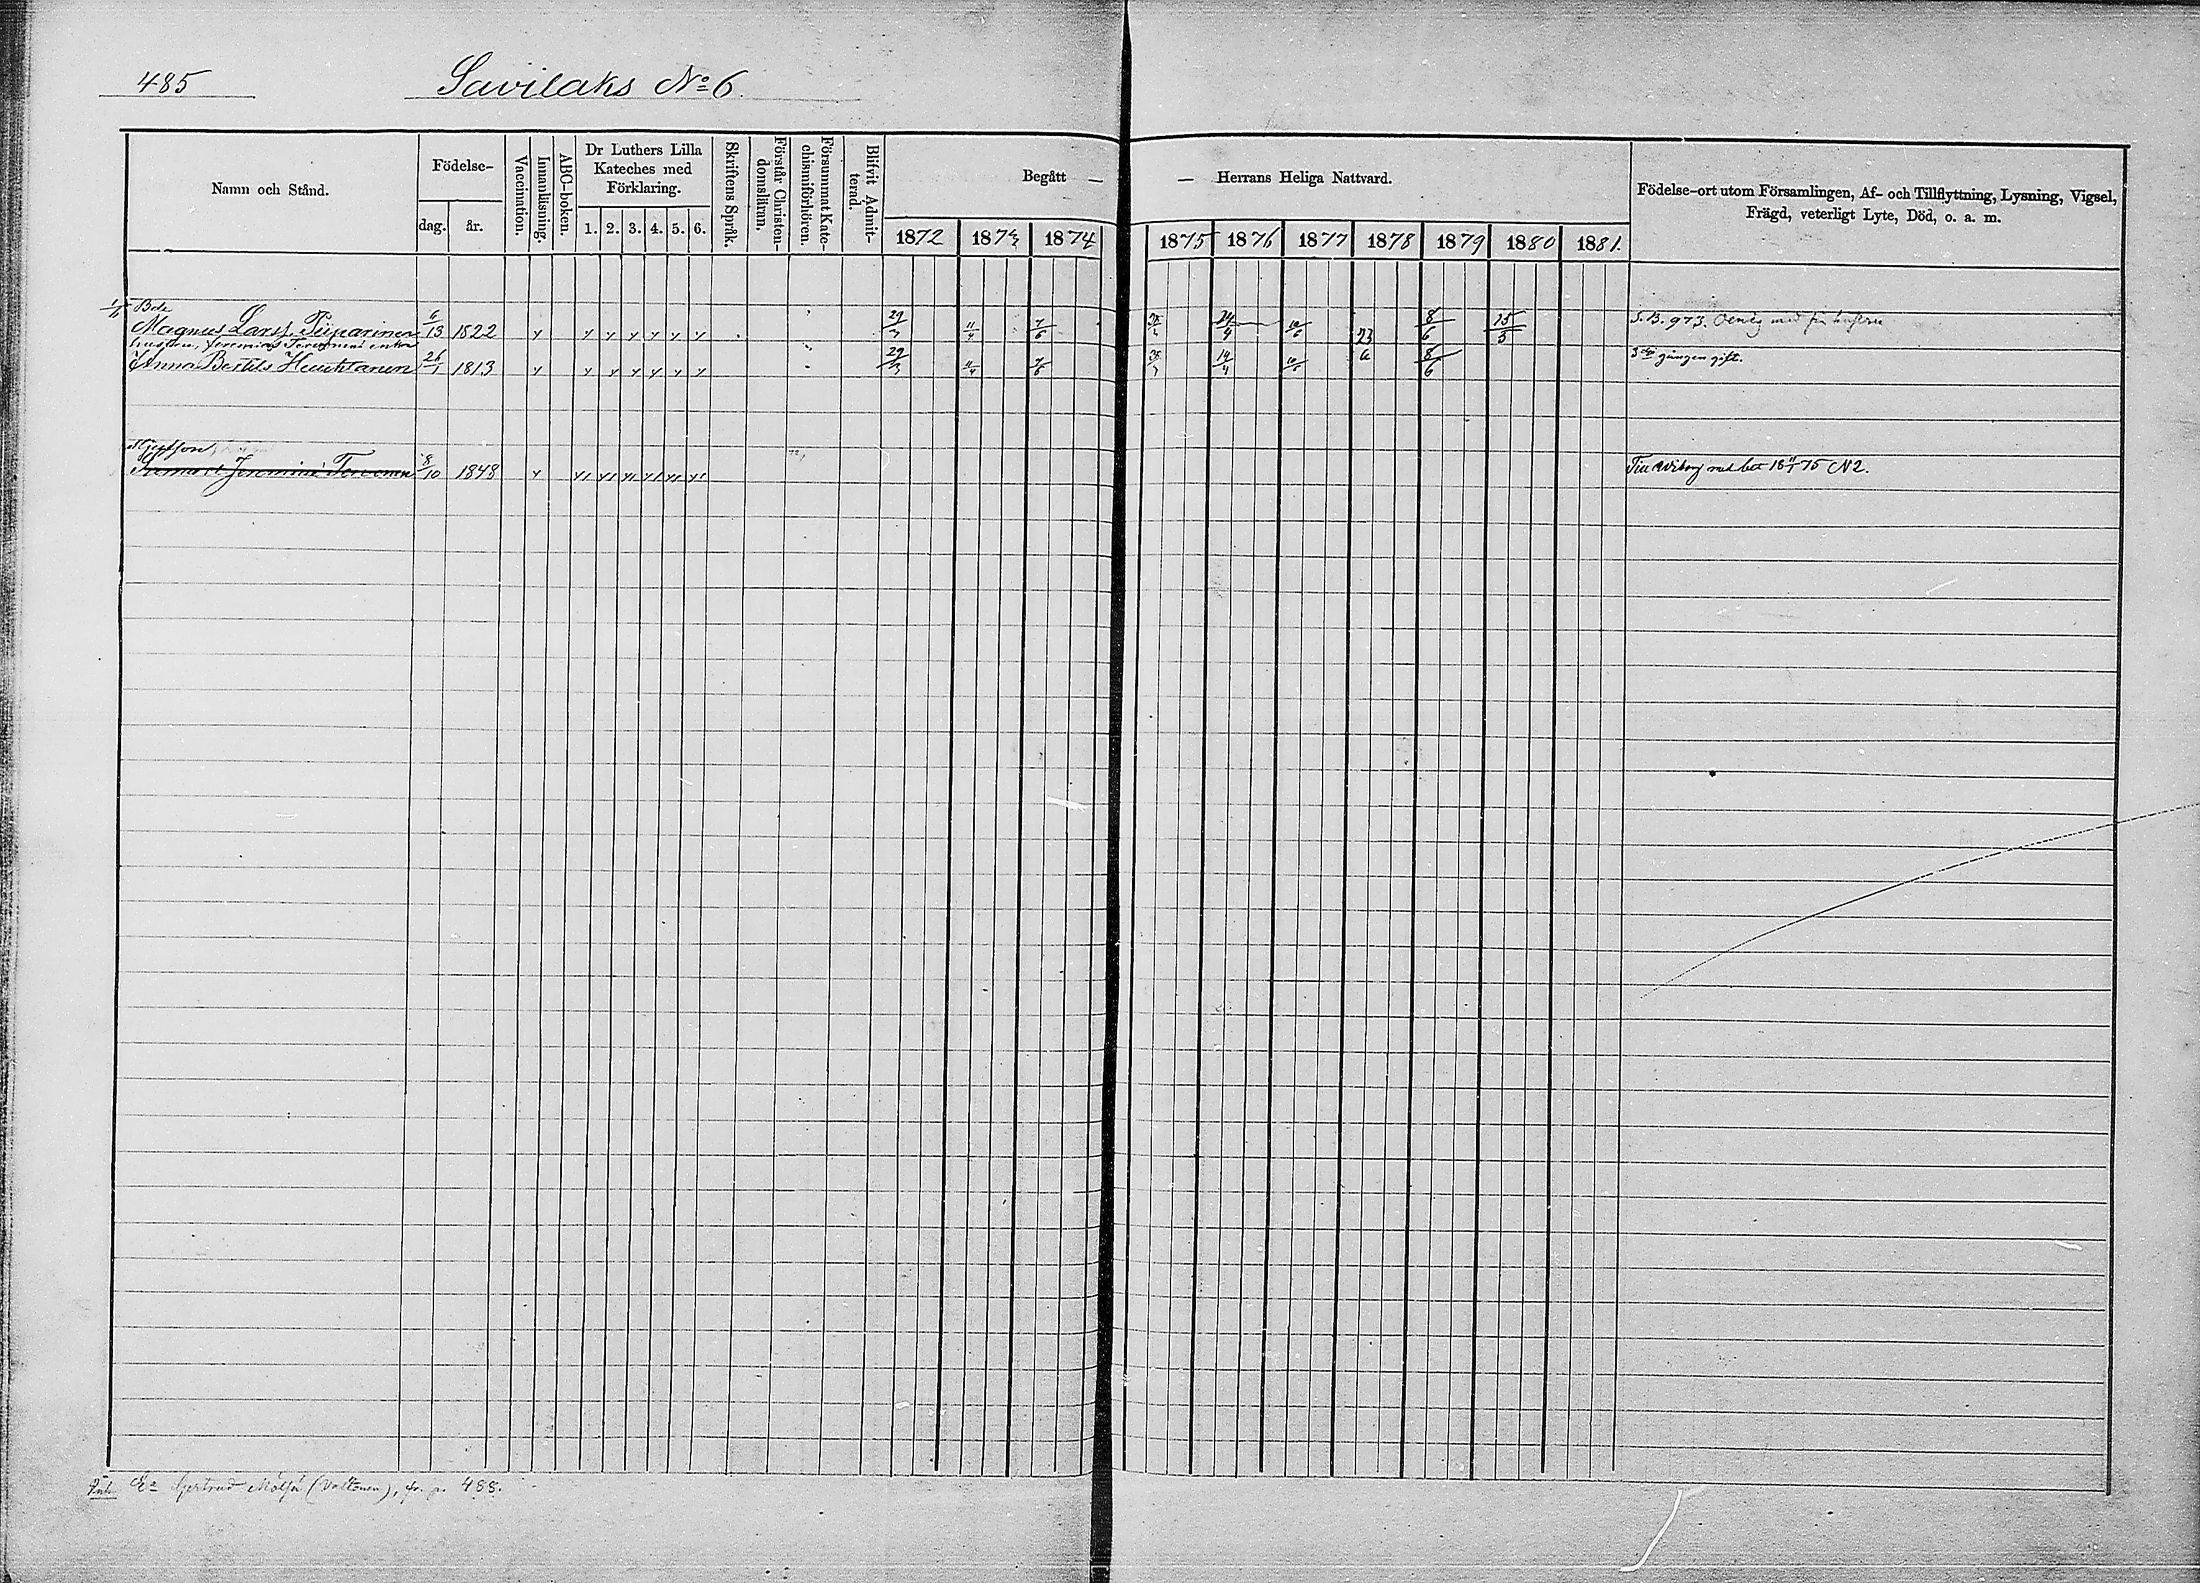 485 Savilaks No 6.
Namn och Stånd.
Födelse-
dag. år.
Vaccination.
Innanläsning.
ABC-boken.
Dr Luthers Lilla
Kateches med
Förklaring.
1. 2. 3. 4. 5. 6.
Skriftens Språk.
Förstår Christen-
domsläran.
Försummat Kate-
chismiförhören.
Blifvit Admit-
terad.
Begått —
— Herrans Heliga Nattvard.
1872 1873 1874 1875 1876 1877 1878 1879 1880 1881.
Födelse-ort utom Församlingen, Af- och Tillflyttning, Lysning, Vigsel,
Frägd, veterligt Lyte, Död, o. a. m.
Magnus Larss. Piiparinen 6/13 1822 y y y y y y y 29/3 11/4 7/6 24/4 10/6 23 8/6 15/5 S. B. 973. Oenig med
hustru, Jeremias enka
Anna Bertils Heikkanen 26/1 1813 y y y y y y y 29/3 11/4 7/6 14/4 10/6 6 8/6 3dje gången gift.
Styfson
Jeremias. 8/10 1848 y Till Wiborg med bet 18 75 N 2.
Gertrud (Valtonen), fr. p. 488.